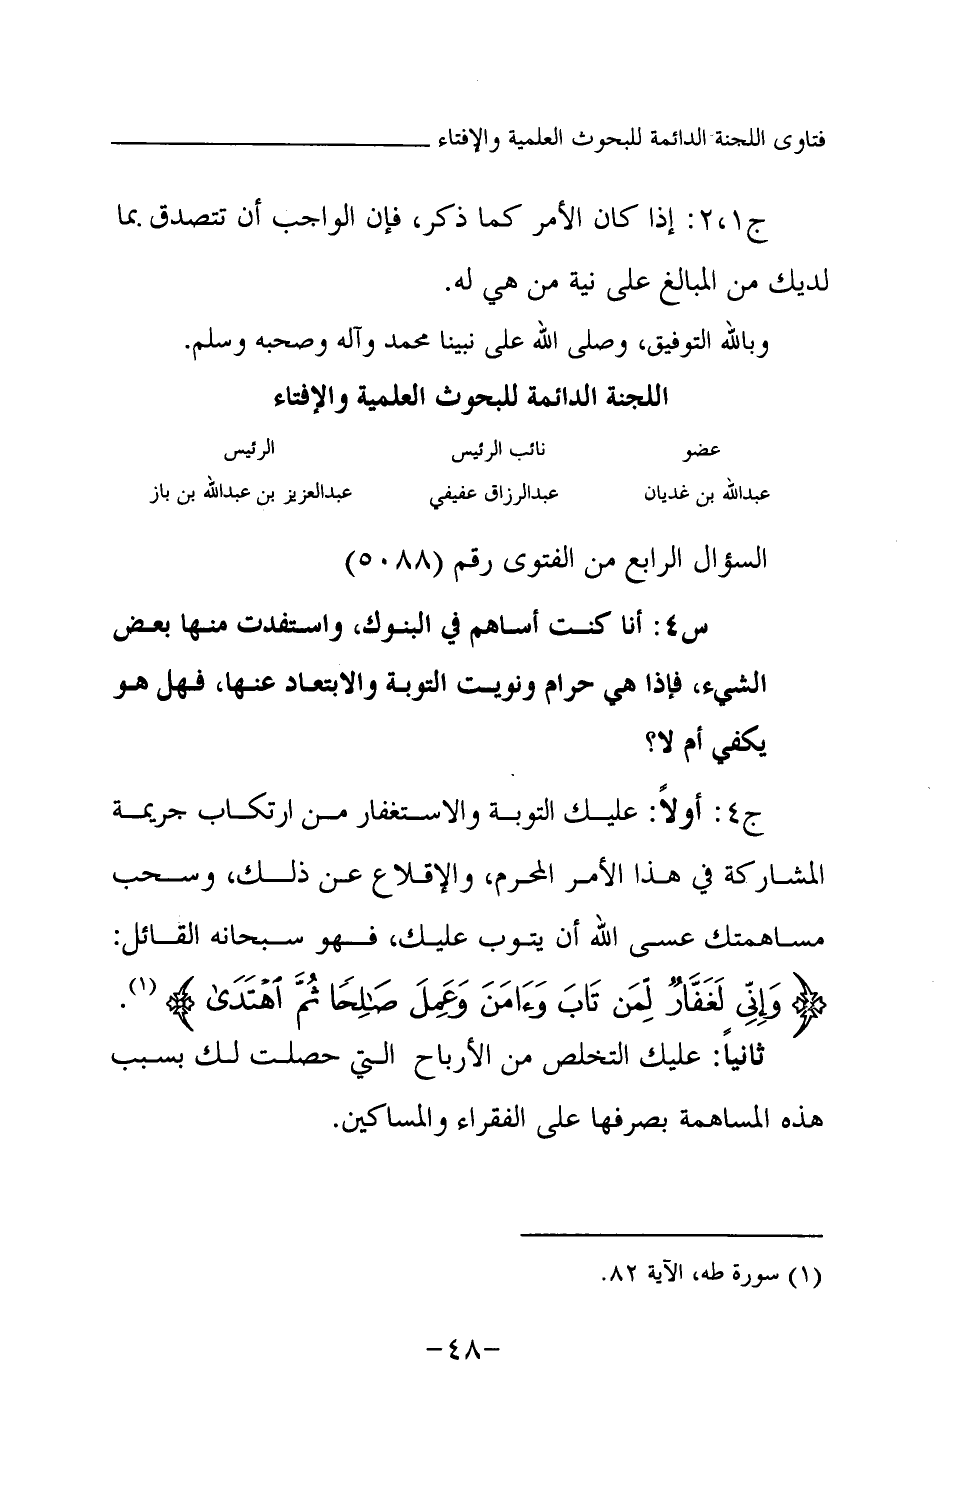 فتاوى اللجنة الدائمة للبحوث العلمية والإفتاء
ج١،٢: إذا كان الأمر كما ذكر، فإن الواجب أن تتصدق بما
لديك من المبالغ على نية من هي له.
وبالله التوفيق، وصلى الله على نبينا محمد وآله وصحبه وسلم.
اللجنة الدائمة للبحوث العلمية والإفتاء
عضو نائب الرئيس الرئيس
عبدالله بن غديان عبدالرزاق عفيفي عبدالعزيز بن عبدالله بن باز
السؤال الرابع من الفتوى رقم (٥٠٨٨)
س٤: أنا كنت أساهم في البنوك، واستفدت منها بعض
الشيء، فإذا هي حرام ونويت التوبة والابتعاد عنها، فهل هو
يكفي أم لا؟
ج٤: أولاً: عليك التوبة والاستغفار من ارتكاب جريمة
المشاركة في هذا الأمر المحرم، والإقلاع عن ذلك، وسحب
مساهمتك عسى الله أن يتوب عليك، فهو سبحانه القائل:
﴿ وَإِنِّي لَغَفَّارٌ لِّمَن تَابَ وَءَامَنَ وَعَمِلَ صَـٰلِحًا ثُمَّ ٱهْتَدَىٰ ﴾ (١).
ثانياً: عليك التخلص من الأرباح التي حصلت لك بسبب
هذه المساهمة بصرفها على الفقراء والمساكين.
(١) سورة طه، الآية ٨٢.
-٤٨-